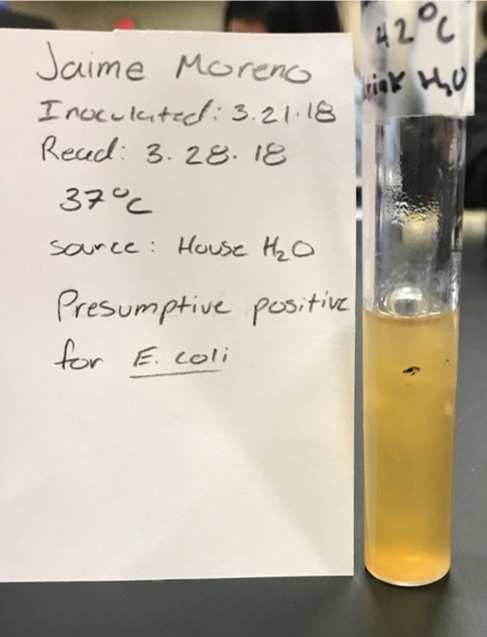 Jaime Moreno
Inoculated: 3.21.18
Read: 3.28.18
37°C
source: House H₂O
Presumptive positive
for E. coli
42°C
H₂O